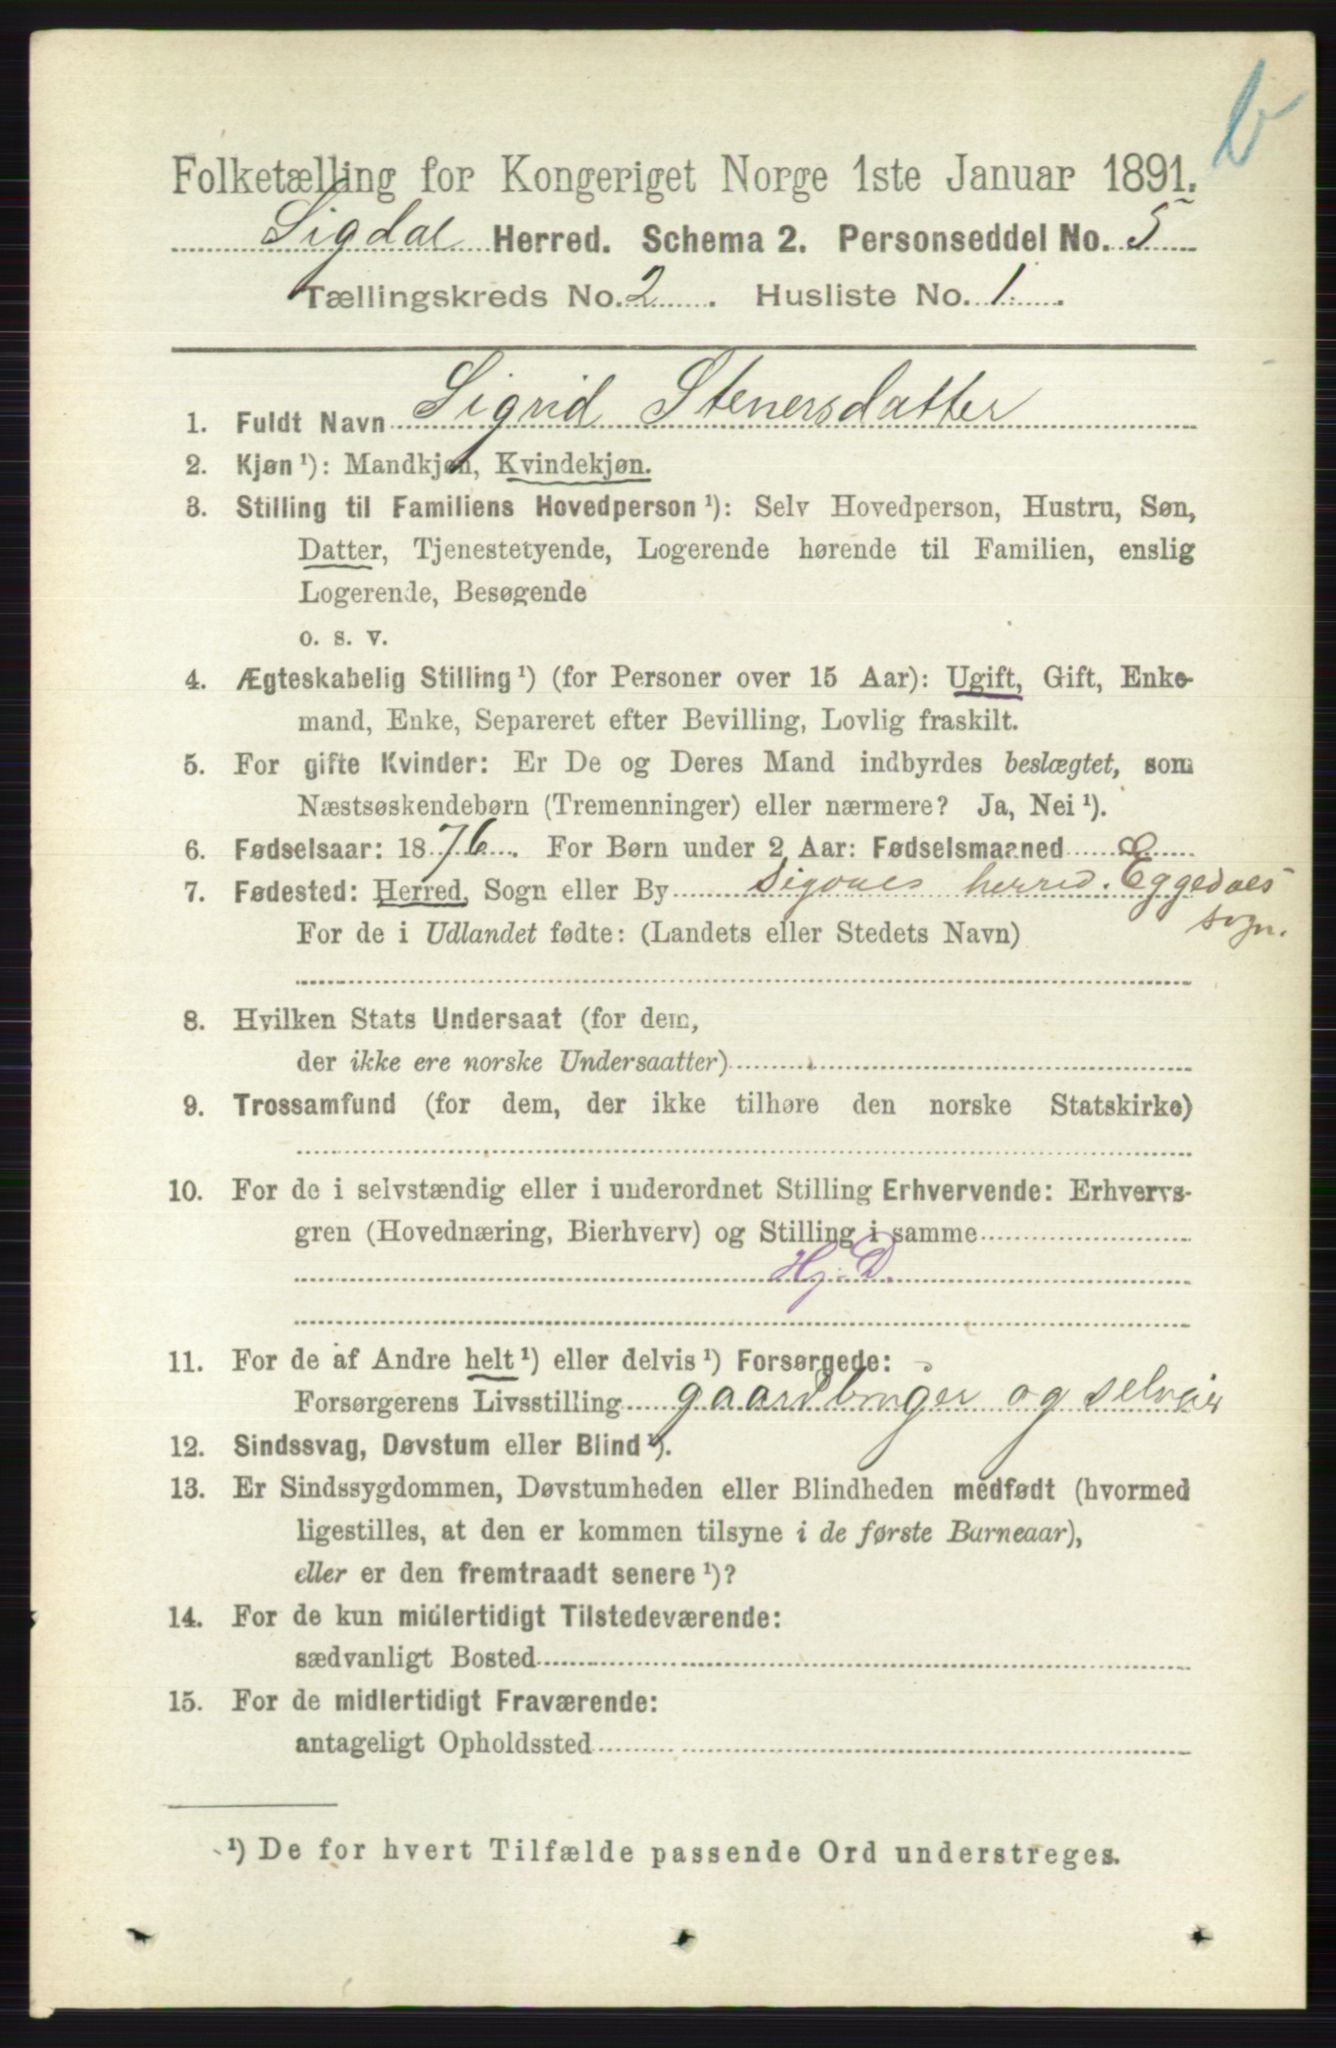 b
Folketælling for Kongeriget Norge 1ste Januar 1891.
Sigdal Herred. Schema 2. Personseddel No. 5
Tællingskreds No. 2. Husliste No. 1.
1. Fuldt Navn Sigrid Stenersdatter
2. Kjøn ¹): Mandkjøn, Kvindekjøn.
3. Stilling til Familiens Hovedperson ¹): Selv Hovedperson, Hustru, Søn,
Datter, Tjenestetyende, Logerende hørende til Familien, enslig
Logerende, Besøgende
o. s. v.
4. Ægteskabelig Stilling ¹) (for Personer over 15 Aar): Ugift, Gift, Enke-
mand, Enke, Separeret efter Bevilling, Lovlig fraskilt.
5. For gifte Kvinder: Er De og Deres Mand indbyrdes beslægtet, som
Næstsøskendebørn (Tremenninger) eller nærmere? Ja, Nei ¹).
6. Fødselsaar: 1876. For Børn under 2 Aar: Fødselsmaaned
7. Fødested: Herred, Sogn eller By Sigdals herred. Eggedals
sogn.
For de i Udlandet fødte: (Landets eller Stedets Navn)
8. Hvilken Stats Undersaat (for dem,
der ikke ere norske Undersaatter)
9. Trossamfund (for dem, der ikke tilhøre den norske Statskirke)
10. For de i selvstændig eller i underordnet Stilling Erhvervende: Erhvervs-
gren (Hovednæring, Bierhverv) og Stilling i samme
Hj. D.
11. For de af Andre helt ¹) eller delvis ¹) Forsørgede:
Forsørgerens Livsstilling gaardbruger og selveier
12. Sindssvag, Døvstum eller Blind ¹).
13. Er Sindssygdommen, Døvstumheden eller Blindheden medfødt (hvormed
ligestilles, at den er kommen tilsyne i de første Barneaar),
eller er den fremtraadt senere ¹)?
14. For de kun midlertidigt Tilstedeværende:
sædvanligt Bosted
15. For de midlertidigt Fraværende:
antageligt Opholdssted
¹) De for hvert Tilfælde passende Ord understreges.